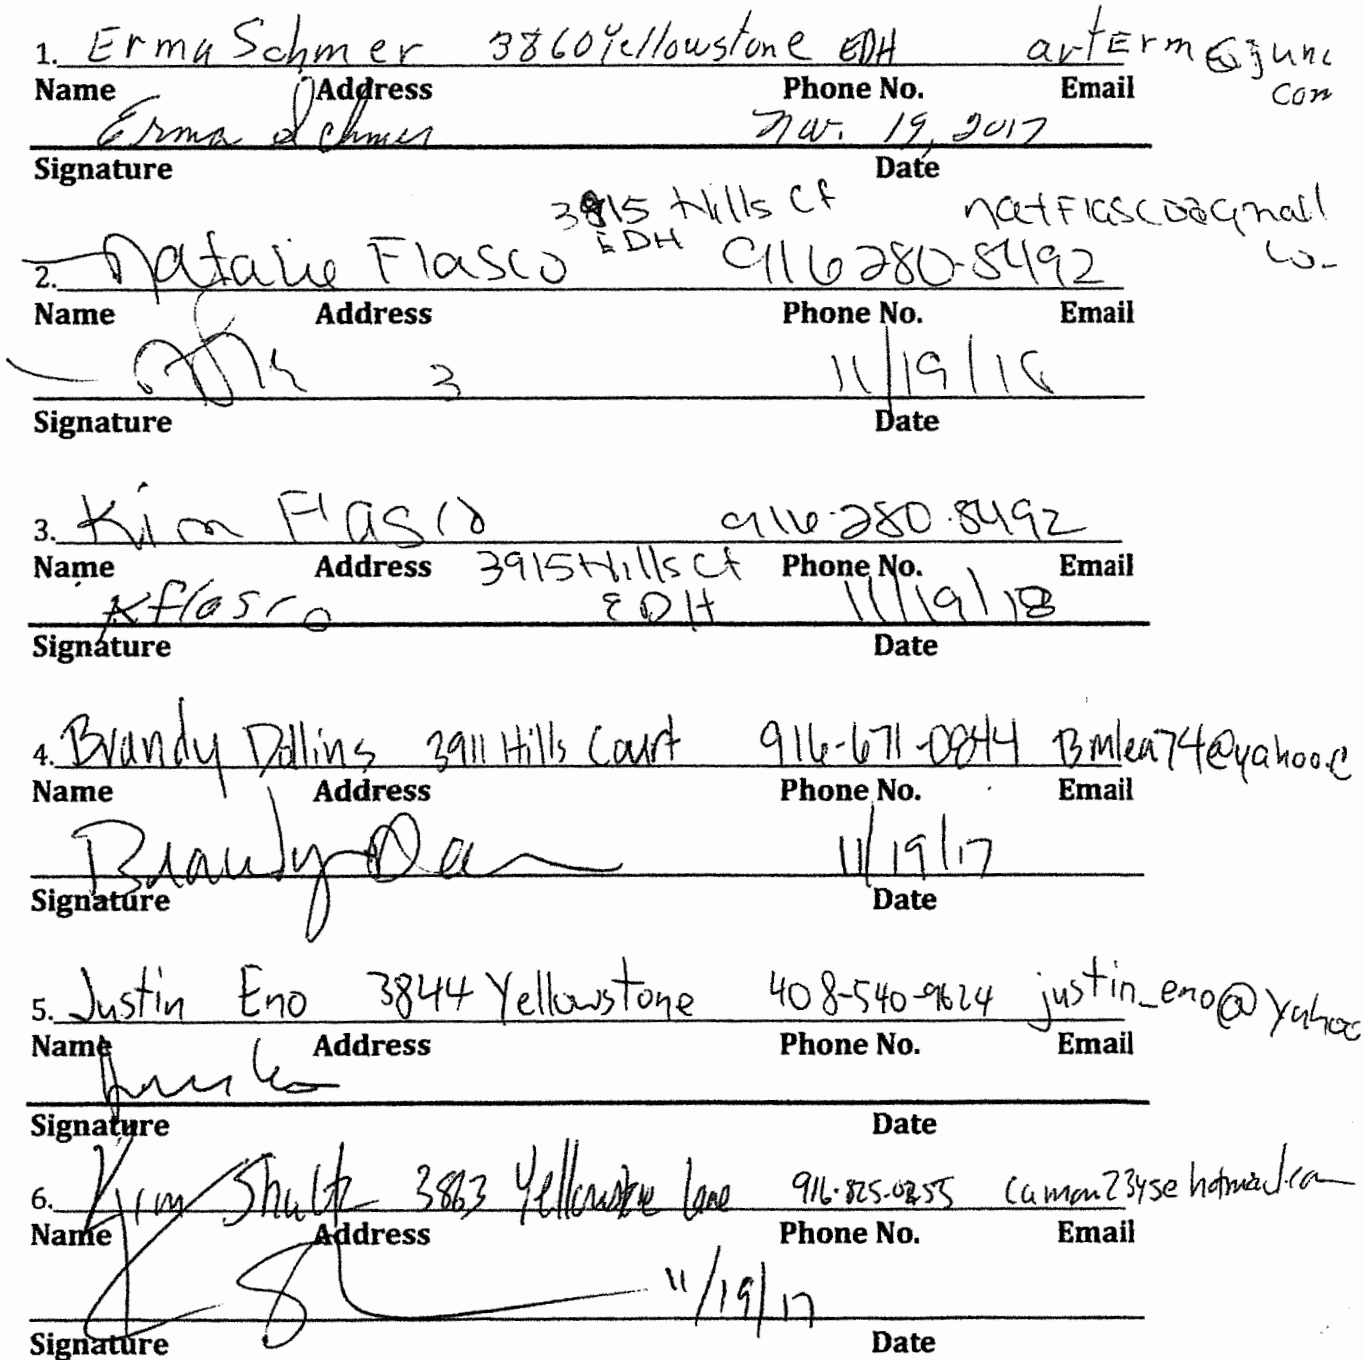 1. Erma Schmer 3860 Yellowstone EDH artErm@juno
com
Name Address Phone No. Email
Erma Schmer Nov. 19, 2017
Signature Date
3915 Hills Ct natFlasco@gmail
EDH
2. Natalie Flasco 916 280-8492 co-
Name Address Phone No. Email
3 11/19/18
Signature Date
3. Kim Flasco 916-280-8492
Name Address 3915 Hills Ct Phone No. Email
Kflasco EDH 11/19/18
Signature Date
4. Brandy Dollins 3911 Hills Court 916-671-0844 Bmlea74@yahoo.c
Name Address Phone No. Email
Brandy
11/19/17
Signature Date
5. Justin Eno 3844 Yellowstone 408-540-9624 justin_eno@yahoo
Name Address Phone No. Email
Signature Date
6. Kim Shultz 3863 Yellowstone Lane 916-825-0255
Name Address Phone No. Email
11/19/17
Signature Date